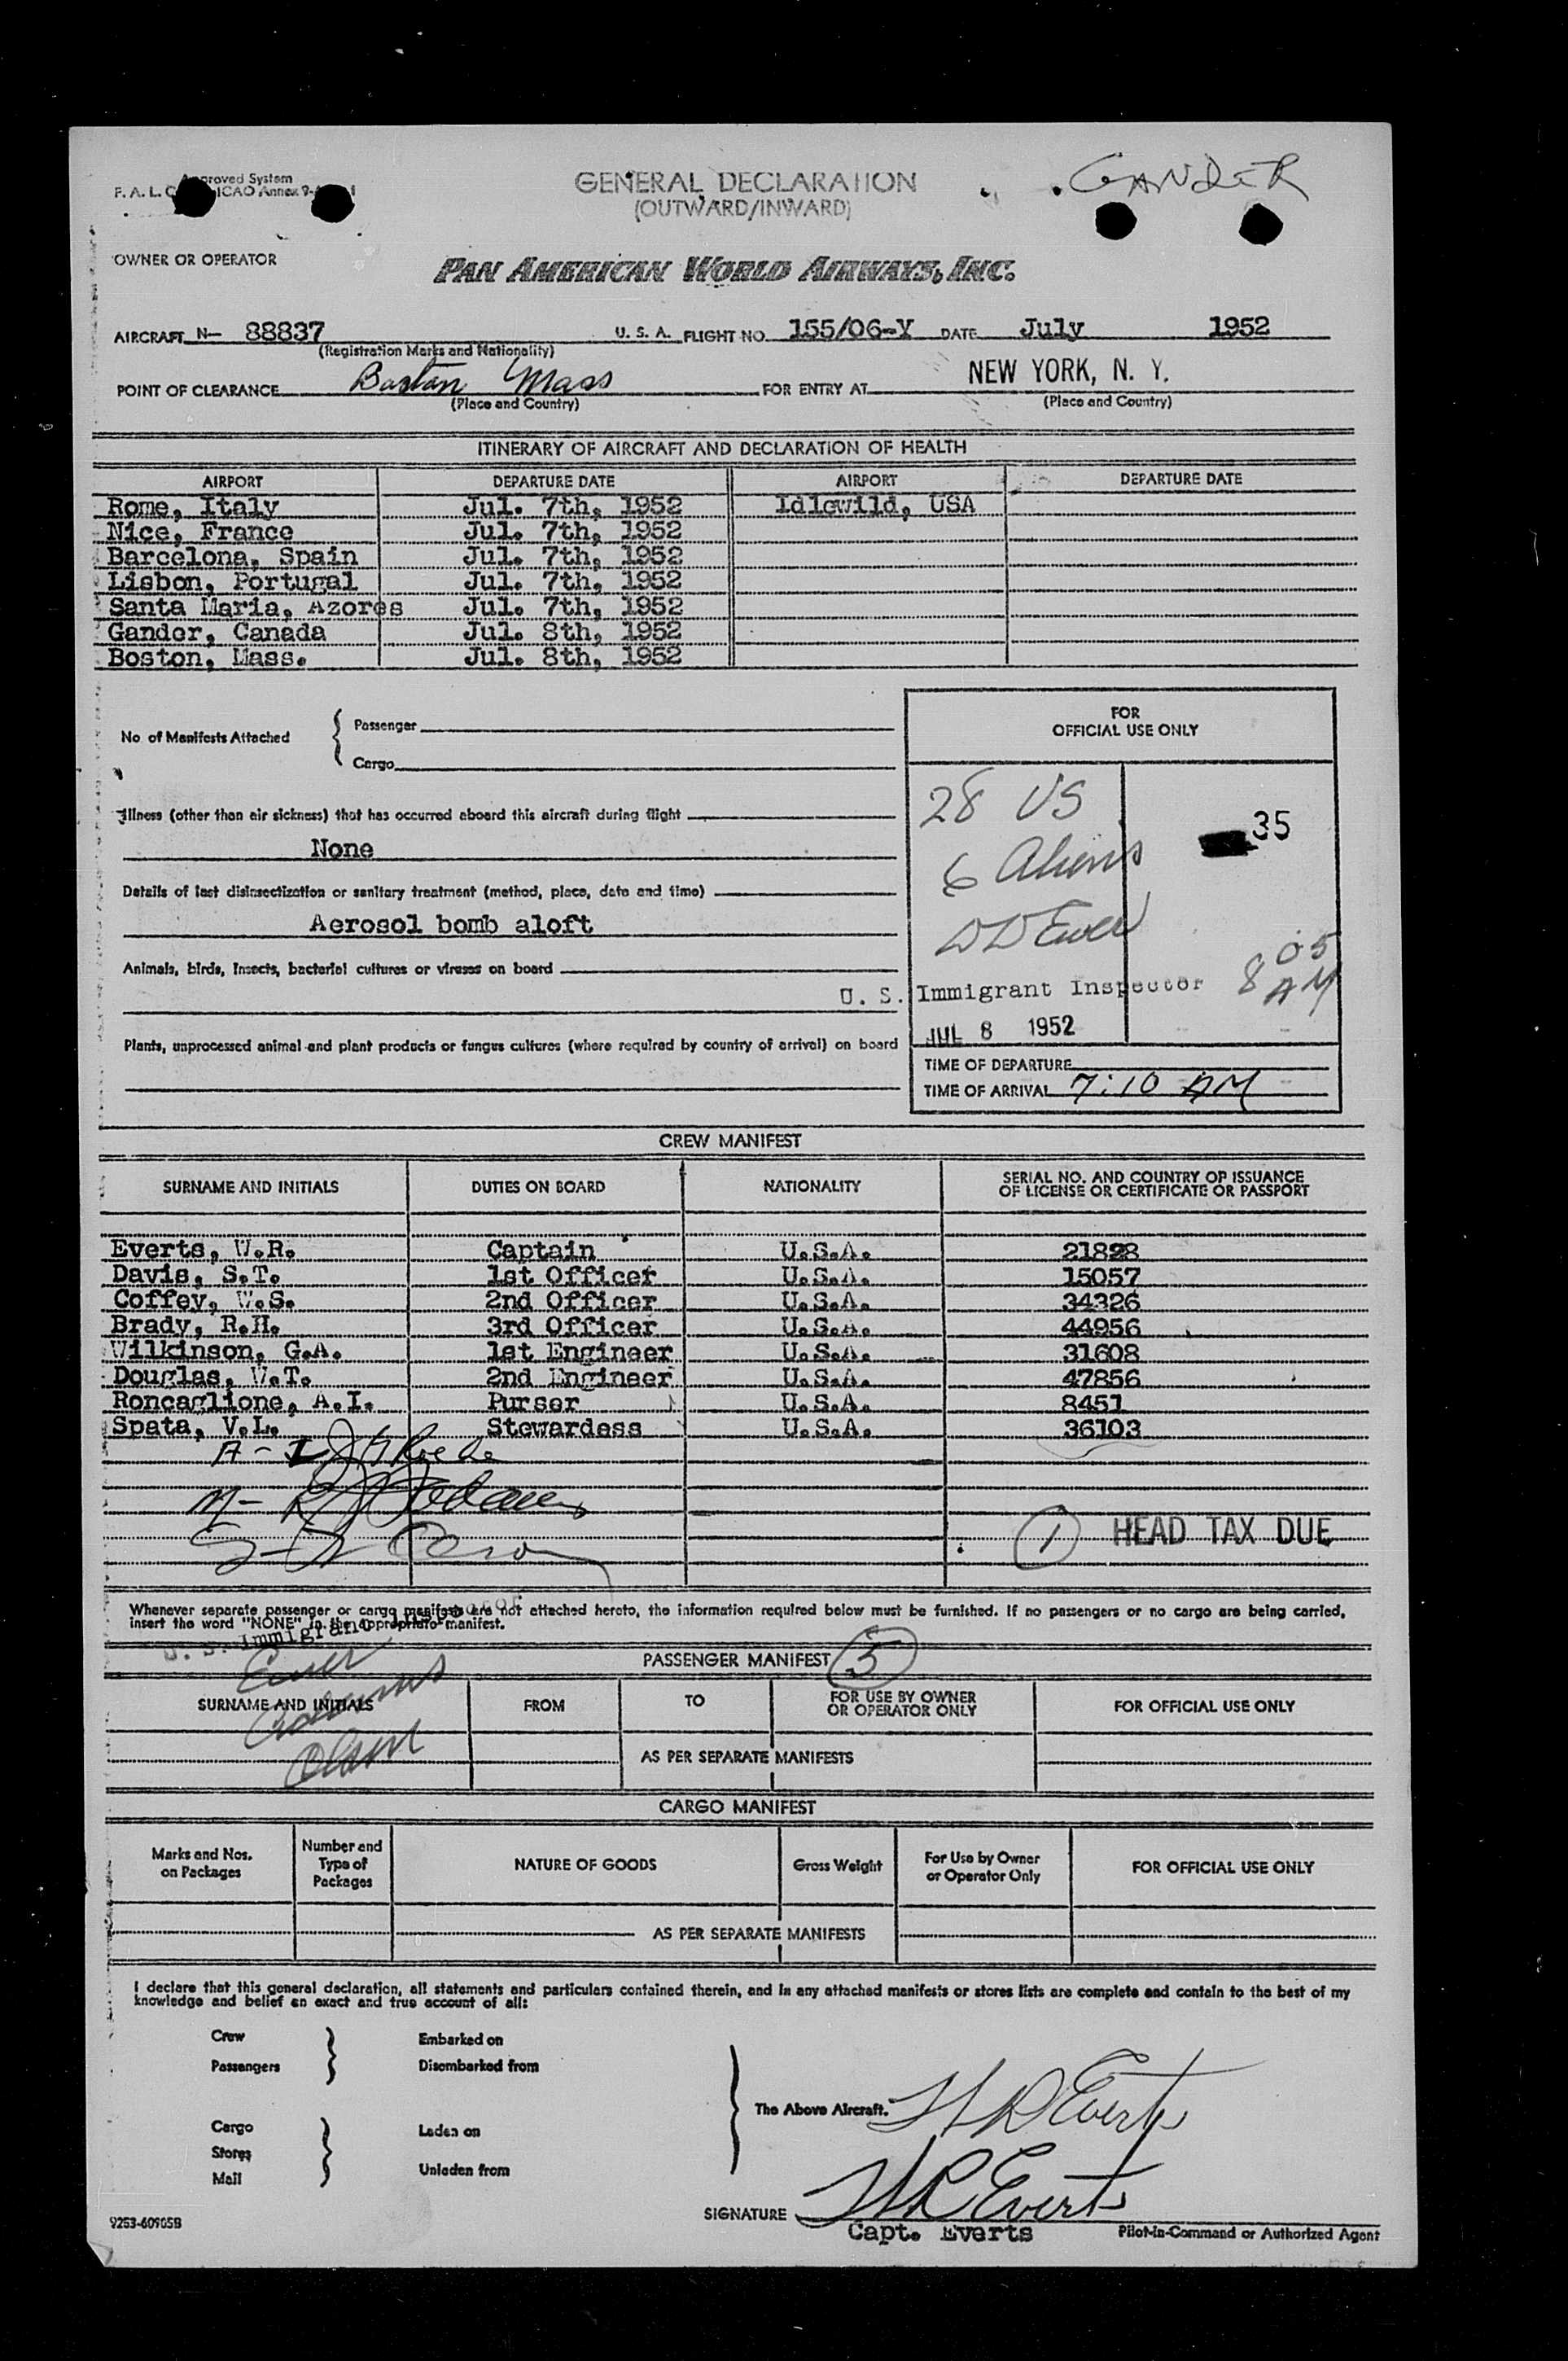 Approved System
F. A. L. C ICAO Annex 9-
GENERAL DECLARATION
(OUTWARD/INWARD)
GANDER
OWNER OR OPERATOR
PAN AMERICAN WORLD AIRWAYS, INC.
AIRCRAFT N- 88837 U. S. A. FLIGHT NO. 155/06-Y DATE July 1952
(Registration Marks and Nationality)
POINT OF CLEARANCE Boston Mass FOR ENTRY AT NEW YORK, N. Y.
(Place and Country) (Place and Country)
ITINERARY OF AIRCRAFT AND DECLARATION OF HEALTH
AIRPORT DEPARTURE DATE AIRPORT DEPARTURE DATE
Rome, Italy Jul. 7th, 1952 Idlewild, USA
Nice, France Jul. 7th, 1952
Barcelona, Spain Jul. 7th, 1952
Lisbon, Portugal Jul. 7th, 1952
Santa Maria, Azores Jul. 7th, 1952
Gander, Canada Jul. 8th, 1952
Boston, Mass. Jul. 8th, 1952
No. of Manifests Attached
Passenger
Cargo
FOR
OFFICIAL USE ONLY
Illness (other than air sickness) that has occurred aboard this aircraft during flight
None
Details of last disinsectization or sanitary treatment (method, place, date and time)
Aerosol bomb aloft
Animals, birds, insects, bacterial cultures or viruses on board
Plants, unprocessed animal and plant products or fungus cultures (where required by country of arrival) on board
28 US
35
6 Aliens
8 05 AM
U. S. Immigrant Inspector
JUL 8 1952
TIME OF DEPARTURE
TIME OF ARRIVAL 7:10 AM
CREW MANIFEST
SURNAME AND INITIALS DUTIES ON BOARD NATIONALITY SERIAL NO. AND COUNTRY OF ISSUANCE
OF LICENSE OR CERTIFICATE OR PASSPORT
Everts, W.R. Captain U.S.A. 21828
Davis, S.T. 1st Officer U.S.A. 15057
Coffey, W.S. 2nd Officer U.S.A. 34326
Brady, R.H. 3rd Officer U.S.A. 44956
Wilkinson, G.A. 1st Engineer U.S.A. 31608
Douglas, W.T. 2nd Engineer U.S.A. 47856
Roncaglione, A.I. Purser U.S.A. 8451
Spata, V.L. Stewardess U.S.A. 36103
1 HEAD TAX DUE
Whenever separate passenger or cargo manifests are not attached hereto, the information required below must be furnished. If no passengers or no cargo are being carried,
insert the word "NONE" in the appropriate manifest.
U. S. Immigrant Inspector
PASSENGER MANIFEST 5
SURNAME AND INITIALS FROM TO FOR USE BY OWNER
OR OPERATOR ONLY FOR OFFICIAL USE ONLY
AS PER SEPARATE MANIFESTS
CARGO MANIFEST
Marks and Nos.
on Packages
Number and
Type of
Packages
NATURE OF GOODS
Gross Weight
For Use by Owner
or Operator Only
FOR OFFICIAL USE ONLY
AS PER SEPARATE MANIFESTS
I declare that this general declaration, all statements and particulars contained therein, and in any attached manifests or stores lists are complete and contain to the best of my
knowledge and belief an exact and true account of all:
Crew Embarked on
Passengers Disembarked from
The Above Aircraft. WREverts
Cargo Laden on
Stores
Mail Unladen from
SIGNATURE WREverts
Capt. Everts Pilot-in-Command or Authorized Agent
9253-60905B